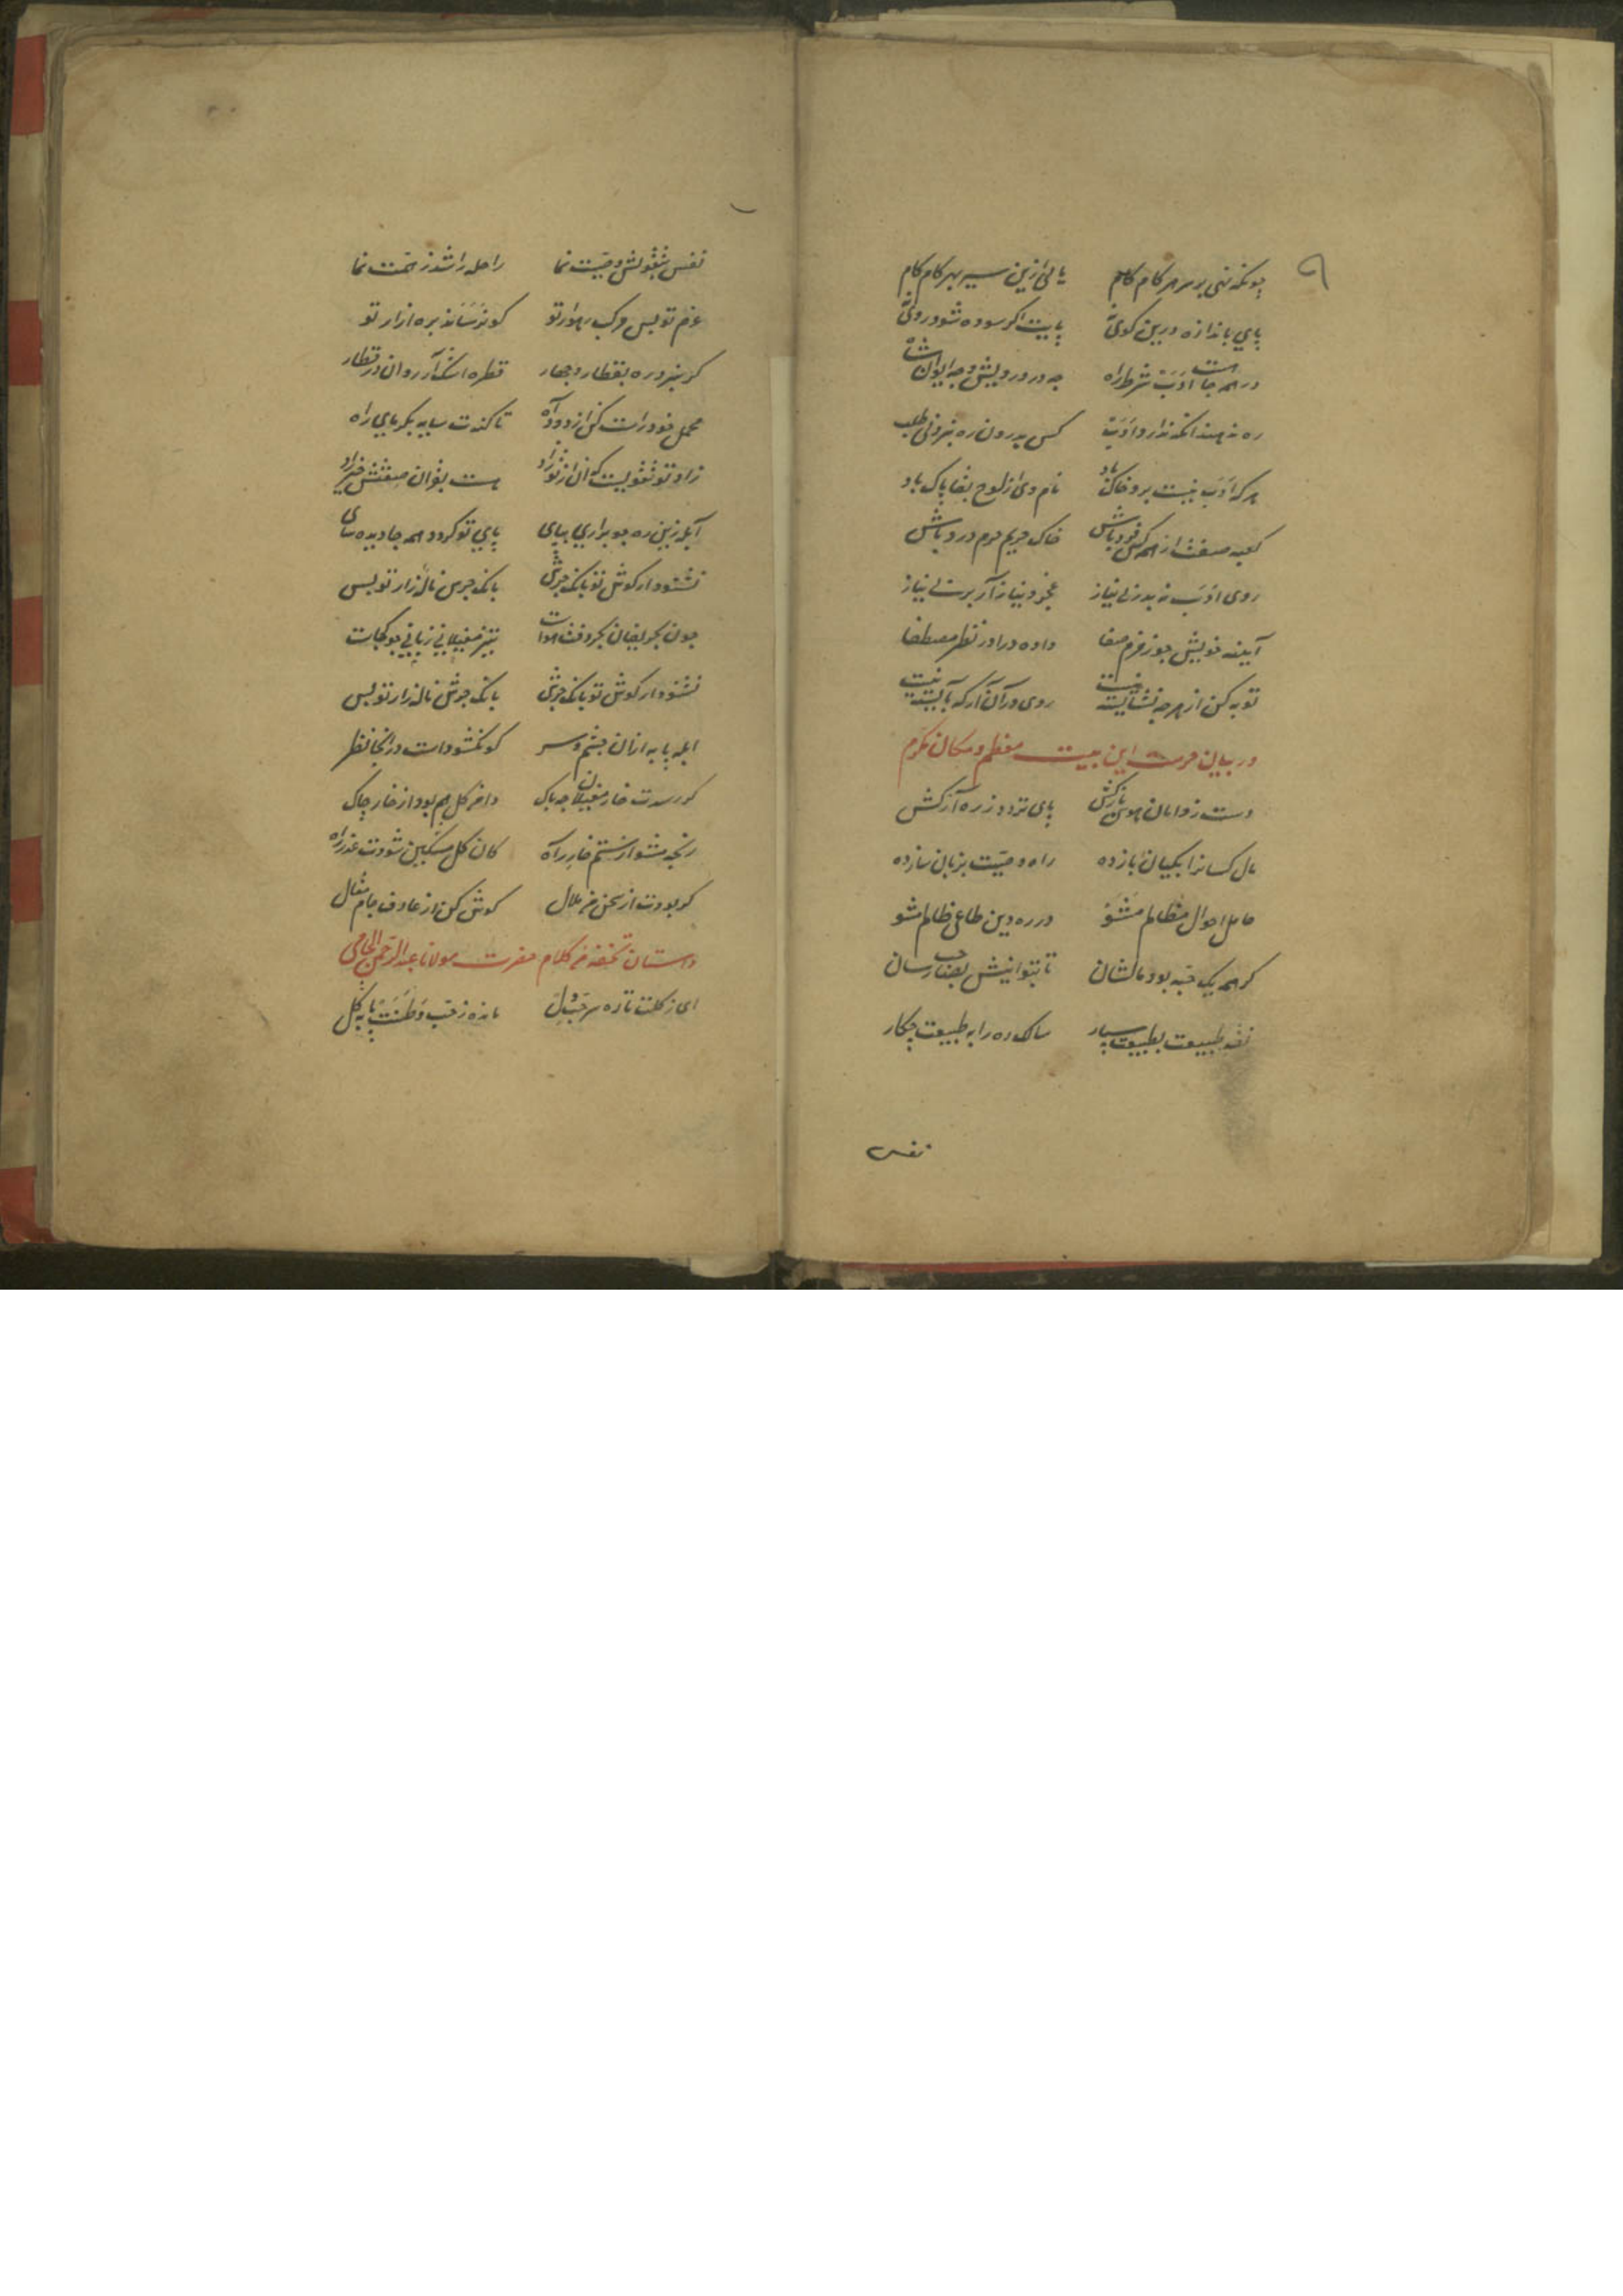 ۹
چونکه نهی بر سر هر کام کام یابی ازین سیر بهر کام کام
پای باندازه درین کوی نه پایت اگر سوده شود روی نه
در همه جا هست ادب شرط راه چه در درویش و چه ایوان شاه
ره ندهند آنکه ندارد ادب کس بدرون ره نبرد بی طلب
هر که ادب نیست برو خاک باد نام وی از لوح بقا پاک باد
کعبه صفت از همه کس فرد باش خاک حریم حرم درد باش
روی ادب نه بدر بی نیاز عجز و نیاز آر بر بی نیاز
آینه خویش چو زمزم صفا داده درا در نظر مصطفا
توبه کن از هر چه نشایسته نیست روی در آن آر که بایسته نیست
در بیان حرمت این بیت معظم و مکان مکرم
دست ز دامان هوس بازکش پای تردد ز ره آز کش
مال کسانرا بکسان بازده راه وصیت بزبان سازده
حامل احوال مظالم مشو در ره دین طاعی ظالم مشو
کر همه یک حبه بود مالشان تا بتوانیش بصاحب رسان
نقد طبیعت بطبیعت سپار سالک ره را به طبیعت چکار
نفس
نفس بتقویش وصیت نما راحله را شد ز همت نما
عزم تو بس مرکب رهوار تو کو نرساند بره آزار تو
کر نبرد ره بقطار و مهار قطره اشک آر روان در قطار
محمل خود راست کن از دود آه تا کندت سایه بگرمای راه
زاد تو تقویست که آن از تو زاد هست بقرآن صفتش خیر زاد
آبله زین ره چو براری بپای پای تو کردد همه جا دیده سای
نشنود ار کوش تو بانک جرس بانک جرس ناله زار تو بس
چون بحریفان بجرو فت هواست تیز مغیلانی زبانی چو کجاست
نشنود ار کوش تو بانک جرس بانک جرس ناله زار تو بس
ابله پا به ازان چشم و سر کو نکشودست در آنجا نظر
کر رسدت خار مغیلان چه باک دامن کل هم بود از خار چاک
رنجه مشو از ستم خار راه کان کل مسکین شودت عذر راه
کر بودت از سخن من ملال کوش کن از عارف جام مثال
داستان تحفه من کلام حضرت مولانا عبد الرحمن الجامی
ای ز کلت تازه سر حب دل مانده ز حب وطنت پا بکل